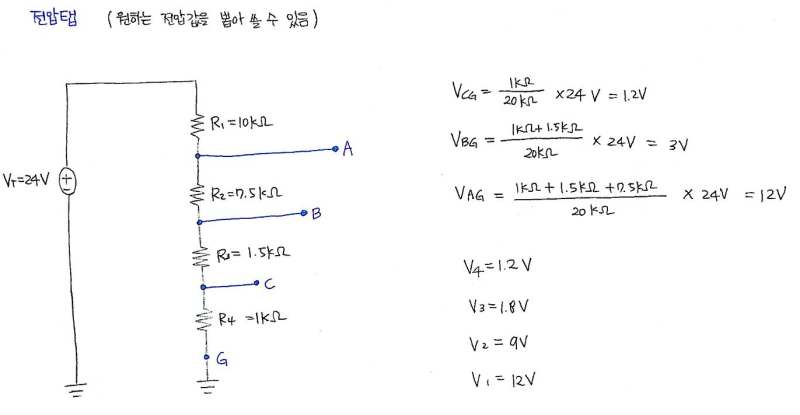 전압탭 (원하는 전압값을 뽑아 쓸 수 있음)
R₁=10kΩ
A
V_T=24V
R₂=7.5kΩ
B
R₃=1.5kΩ
C
R₄=1kΩ
G
V_CG = 1kΩ/20kΩ × 24V = 1.2V
V_BG = 1kΩ+1.5kΩ/20kΩ × 24V = 3V
V_AG = 1kΩ+1.5kΩ+7.5kΩ/20kΩ × 24V = 12V
V₄=1.2V
V₃=1.8V
V₂=9V
V₁=12V